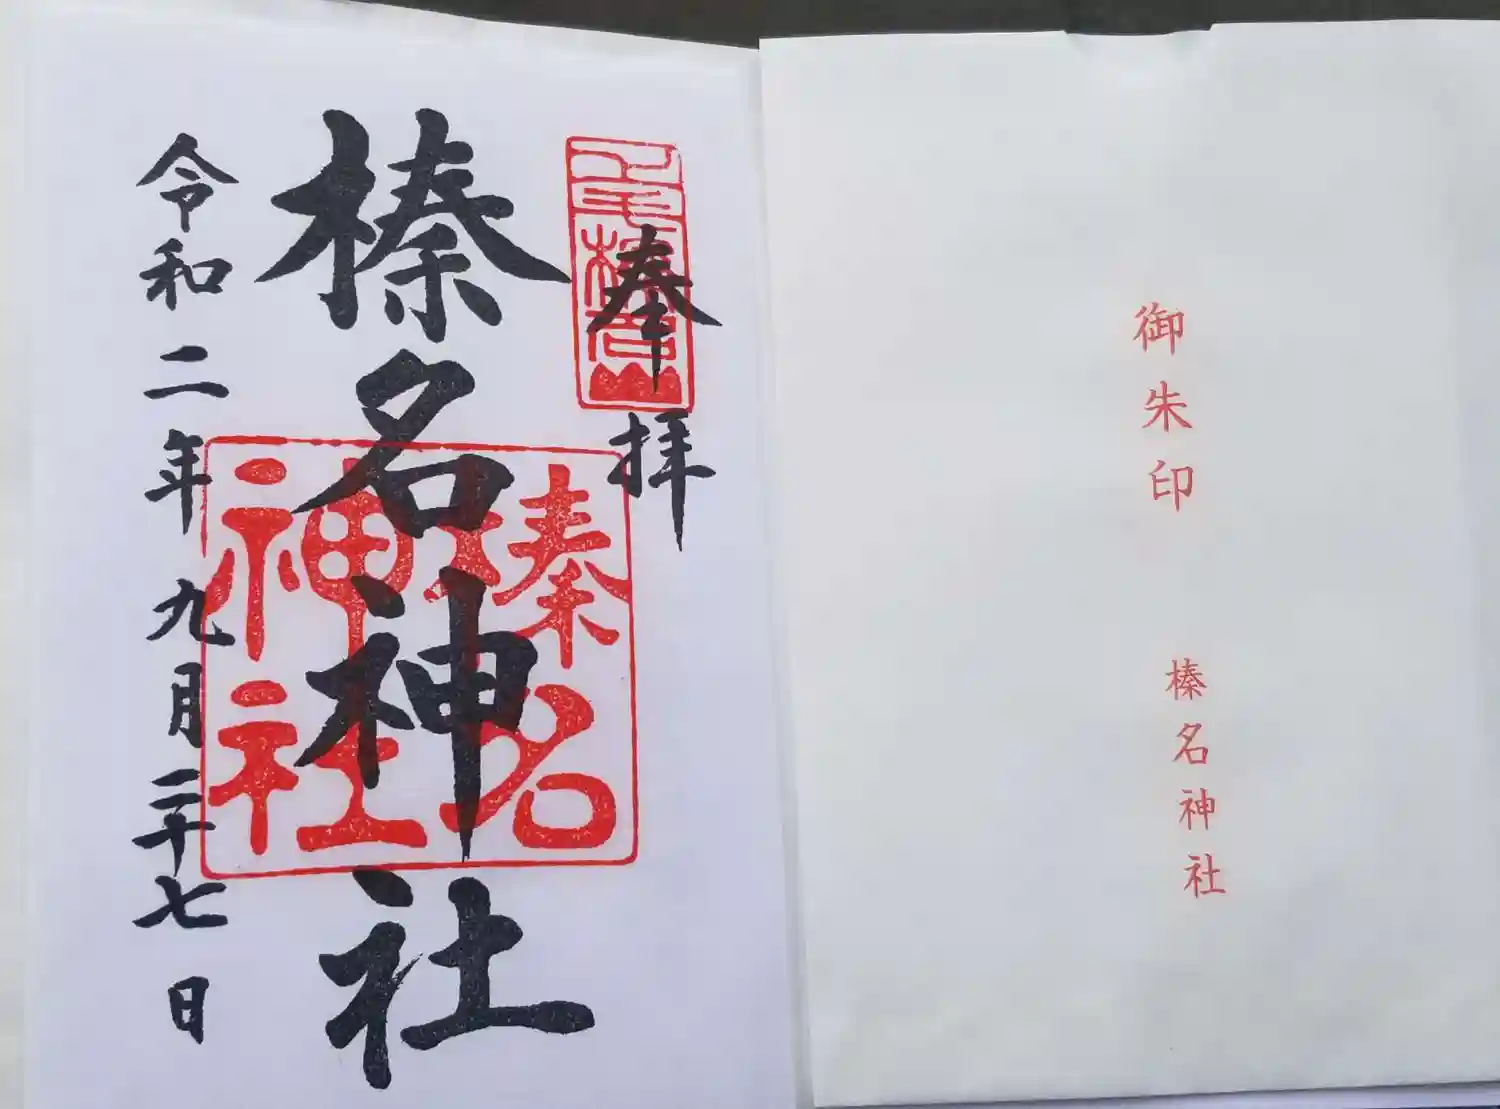 御朱印
榛名神社
奉拝
榛名神社
榛名
神社
令和二年九月二十七日